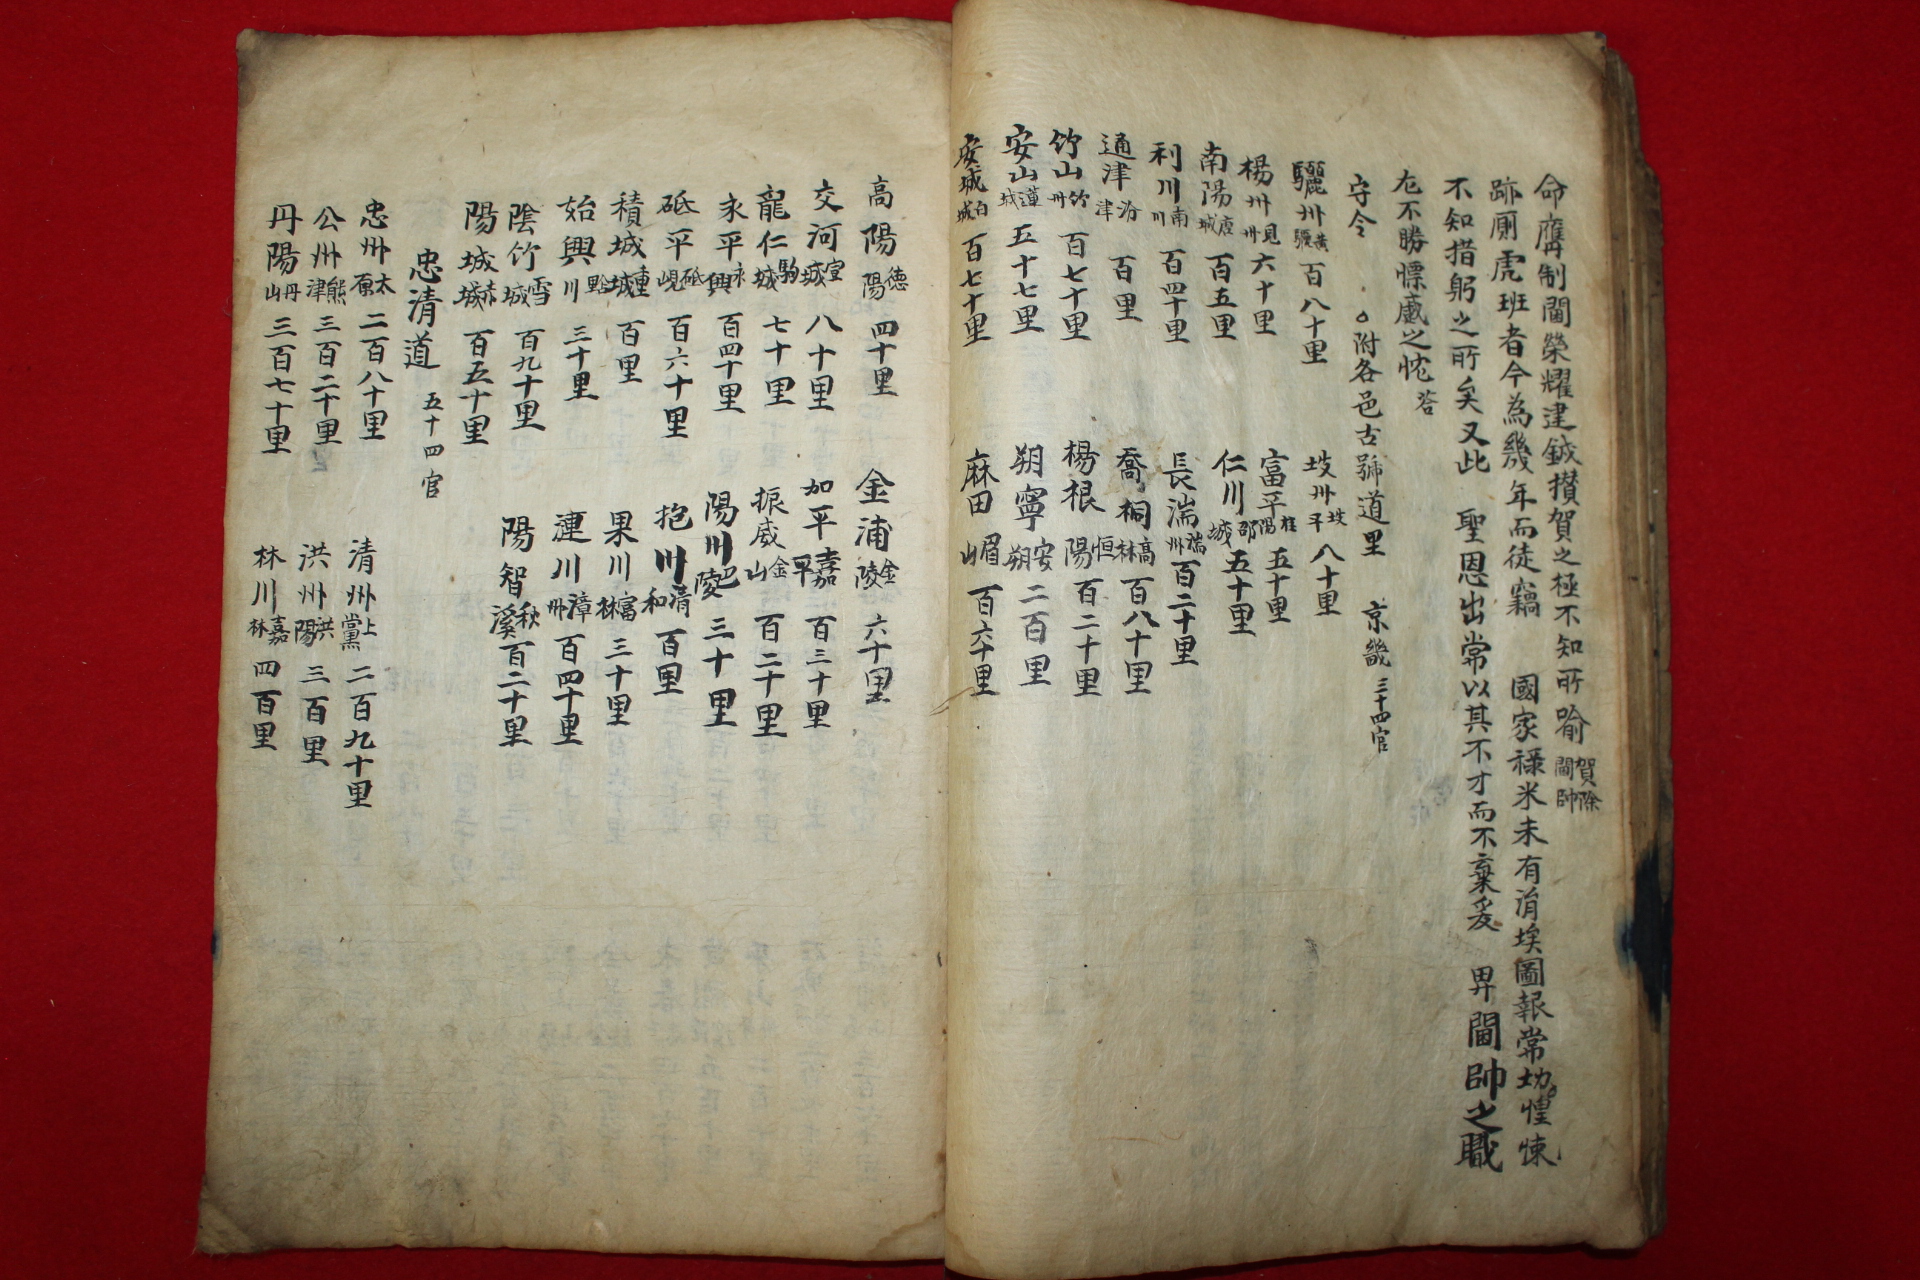 命膺制閫榮耀建鉞攅賀之極不知所喻 賀除閫帥
跡厠虎班者今為幾年而徒竊 國家祿米未有涓埃圖報常切惶悚
不知措躬之所矣又此 聖恩出常以其不才而不棄爰 畀閫帥之職
尤不勝慓蹙之忱 答
守令 ○附各邑古號道里 京畿 三十四官
驪州 黃驪 百八十里 坡州 坡平 八十里
楊州 見州 六十里 富平 桂陽 五十里
南陽 唐城 百五里 仁川 邵城 五十里
利川 南川 百四十里 長湍 湍州 百二十里
通津 汾津 百里 喬桐 高林 百八十里
竹山 竹州 百七十里 楊根 恒陽 百二十里
安山 蓮城 五十七里 朔寧 安朔 二百里
安城 白城 百七十里 麻田 眉山 百六十里
高陽 德陽 四十里 金浦 金陵 六十里
交河 宣城 八十里 加平 嘉平 百三十里
龍仁 駒城 七十里 振威 金山 百二十里
永平 永興 百四十里 陽川 巴陵 三十里
砥平 砥峴 百六十里 抱川 清和 百里
積城 重城 百里 果川 富林 三十里
始興 黔川 三十里 漣川 漳州 百四十里
陰竹 雪城 百九十里 陽智 秋溪 百二十里
陽城 赤城 百五十里
忠清道 五十四官
忠州 太原 二百八十里 清州 上黨 二百九十里
公州 熊津 三百二十里 洪州 洪陽 三百里
丹陽 丹山 三百七十里 林川 嘉林 四百里